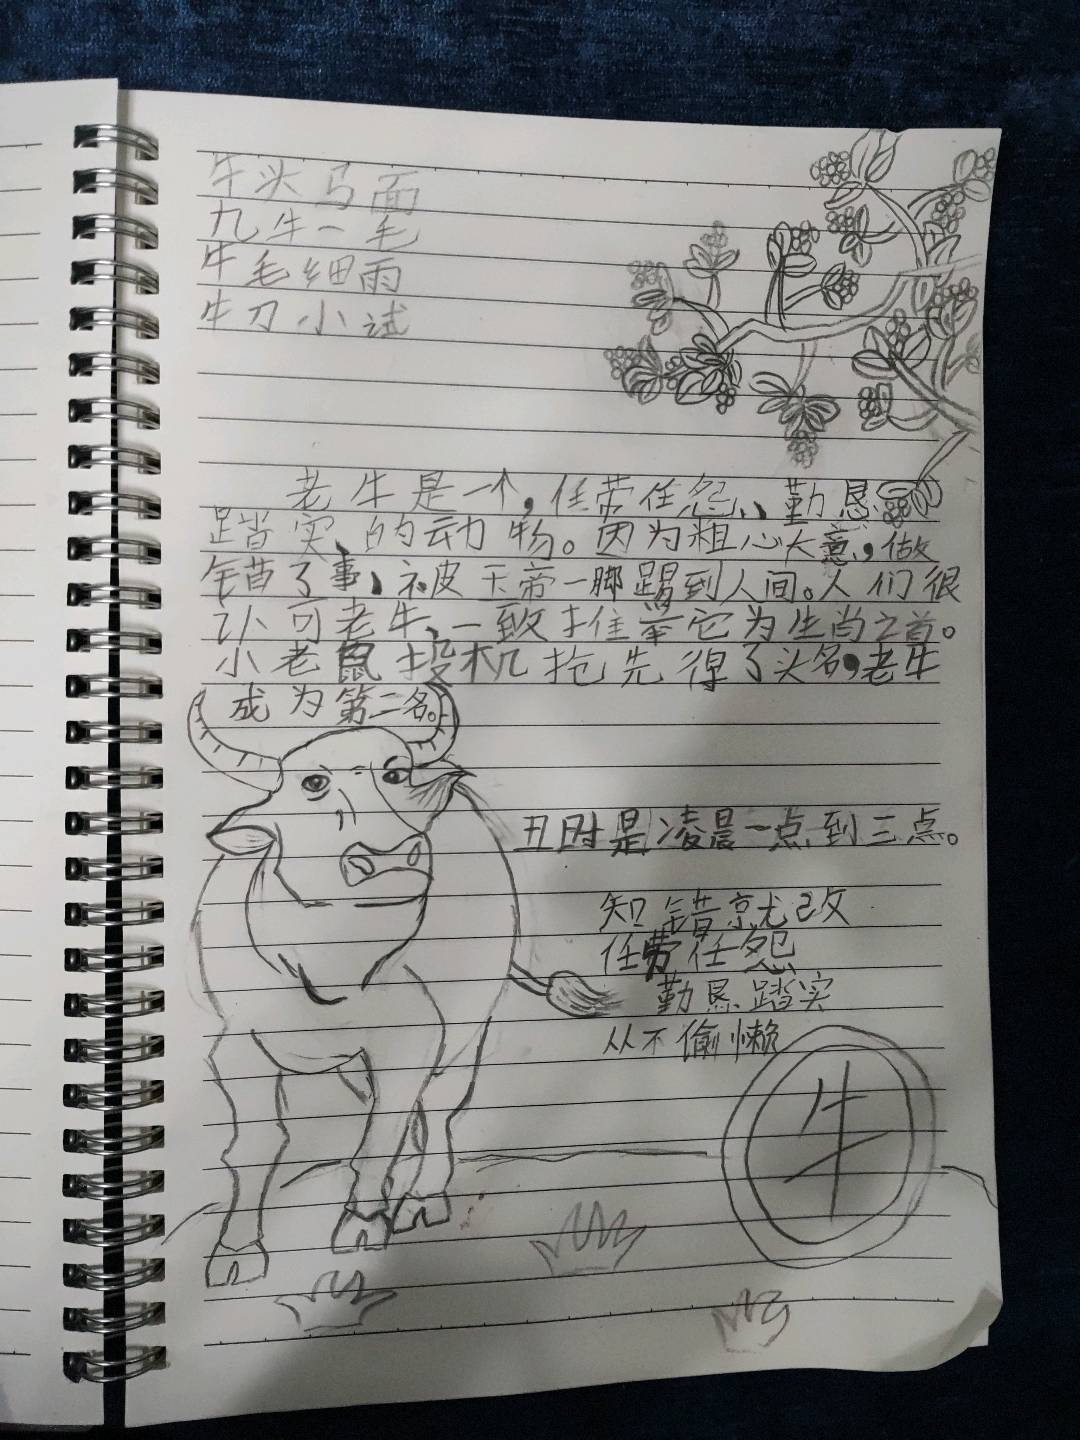 牛头马面
九牛一毛
牛毛细雨
牛刀小试
老牛是一个，任劳任怨、勤恳
踏实、的动物。因为粗心大意，做
错了事、被玉帝一脚踢到人间。人们很
认可老牛、一致推举它为生肖之首。
小老鼠投机抢先得了头名，老牛
成为第二名。
丑时是凌晨一点到三点。
知错就改
任劳任怨
勤恳踏实
从不偷懒
牛